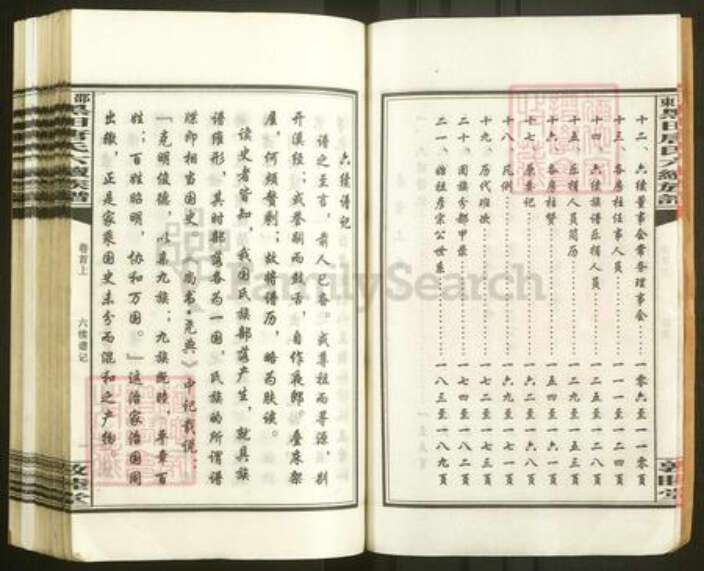 十二、六续董事会常务理事会……一零六至一一零页
十三、各房柱任事人员……一一一至一二四页
十四、六续族谱乐捐人员……一二五至一二八页
十五、乐捐人员简历……一二九至一五三页
十六、各房柱赞……一五四至一六一页
十七、原叁记……一六二至一六八页
十八、凡例……一六九至一七一页
十九、历代班次……一七二至一七三页
二十、团族分部甲录……一七四至一八二页
二一、始祖彦宗公世系……一八三至一八九页
敦睦堂
六续谱记
谱之至言，前人已备。或尊祖而寻源，别
开溪经；或眷嗣而鼓舌，自作夜郎。叠床架
屋，何须赘剧；故将谱历，略为肤谈。
读史者皆知，我国民族部落产生，就具族
谱雏形，其时部落各为一国，民族的所谓谱
牒即相当国史。《尚书·尧典》中记载说：
“克明俊德，以亲九族；九族既睦，平章百
姓；百姓昭明，协和万国。”这治家治国同
出辙，正是家乘国史未分而混和之产物
六续族谱
卷首上
六续谱记
敦睦堂
FamilySearch